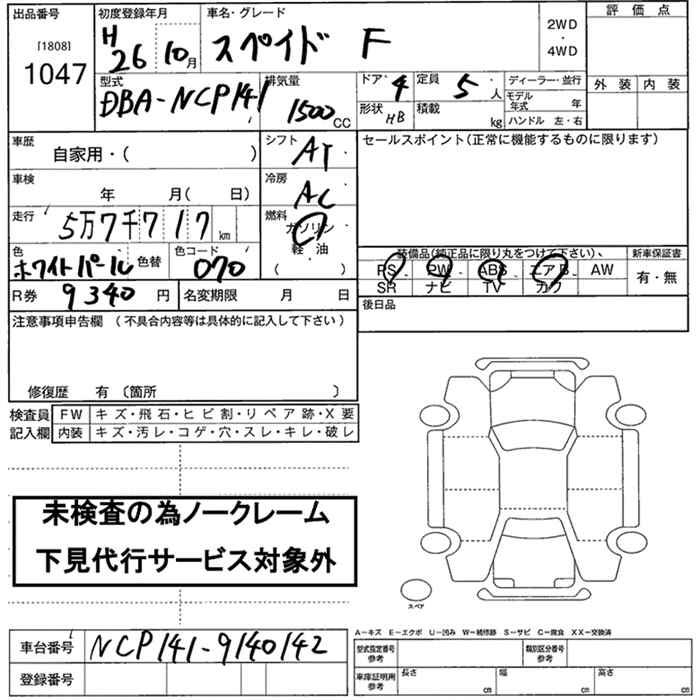 出品番号 初度登録年月 車名・グレード 2WD ・ 4WD 評価点
[1808] 1047 H 26 10月 スペイド F 外装 内装
型式 DBA-NCP141 排気量 1500 CC ドア 4 定員 5人 ディーラー・並行
形状 HB 積載 kg モデル年式 年
ハンドル 左・右
車歴 自家用・( ) シフト AT セールスポイント(正常に機能するものに限ります)
車検 年 月( 日) 冷房 AC
走行 5万7千717km 燃料 ガソリン 軽・油 ( )
色 ホワイトパール 色替 色コード 070 装備品(純正品に限り丸をつけて下さい)、 新車保証書
PS PW ABS エアB AW 有・無
SR ナビ TV カワ
R券 9340円 名変期限 月 日 後日品
注意事項申告欄 (不具合内容等は具体的に記入して下さい)
修復歴 有 〔箇所 〕
検査員 FW キズ・飛石・ヒビ割・リペア跡・X要
記入欄 内装 キズ・汚レ・コゲ・穴・スレ・キレ・破レ
未検査の為ノークレーム
下見代行サービス対象外
スペア
A-キズ E-エクボ U-凹み W-補修跡 S-サビ C-腐食 XX-交換済
車台番号 NCP141-9140142 型式指定番号 参考 類別区分番号 参考
登録番号 車庫証明用 参考 長さ cm 幅 cm 高さ cm